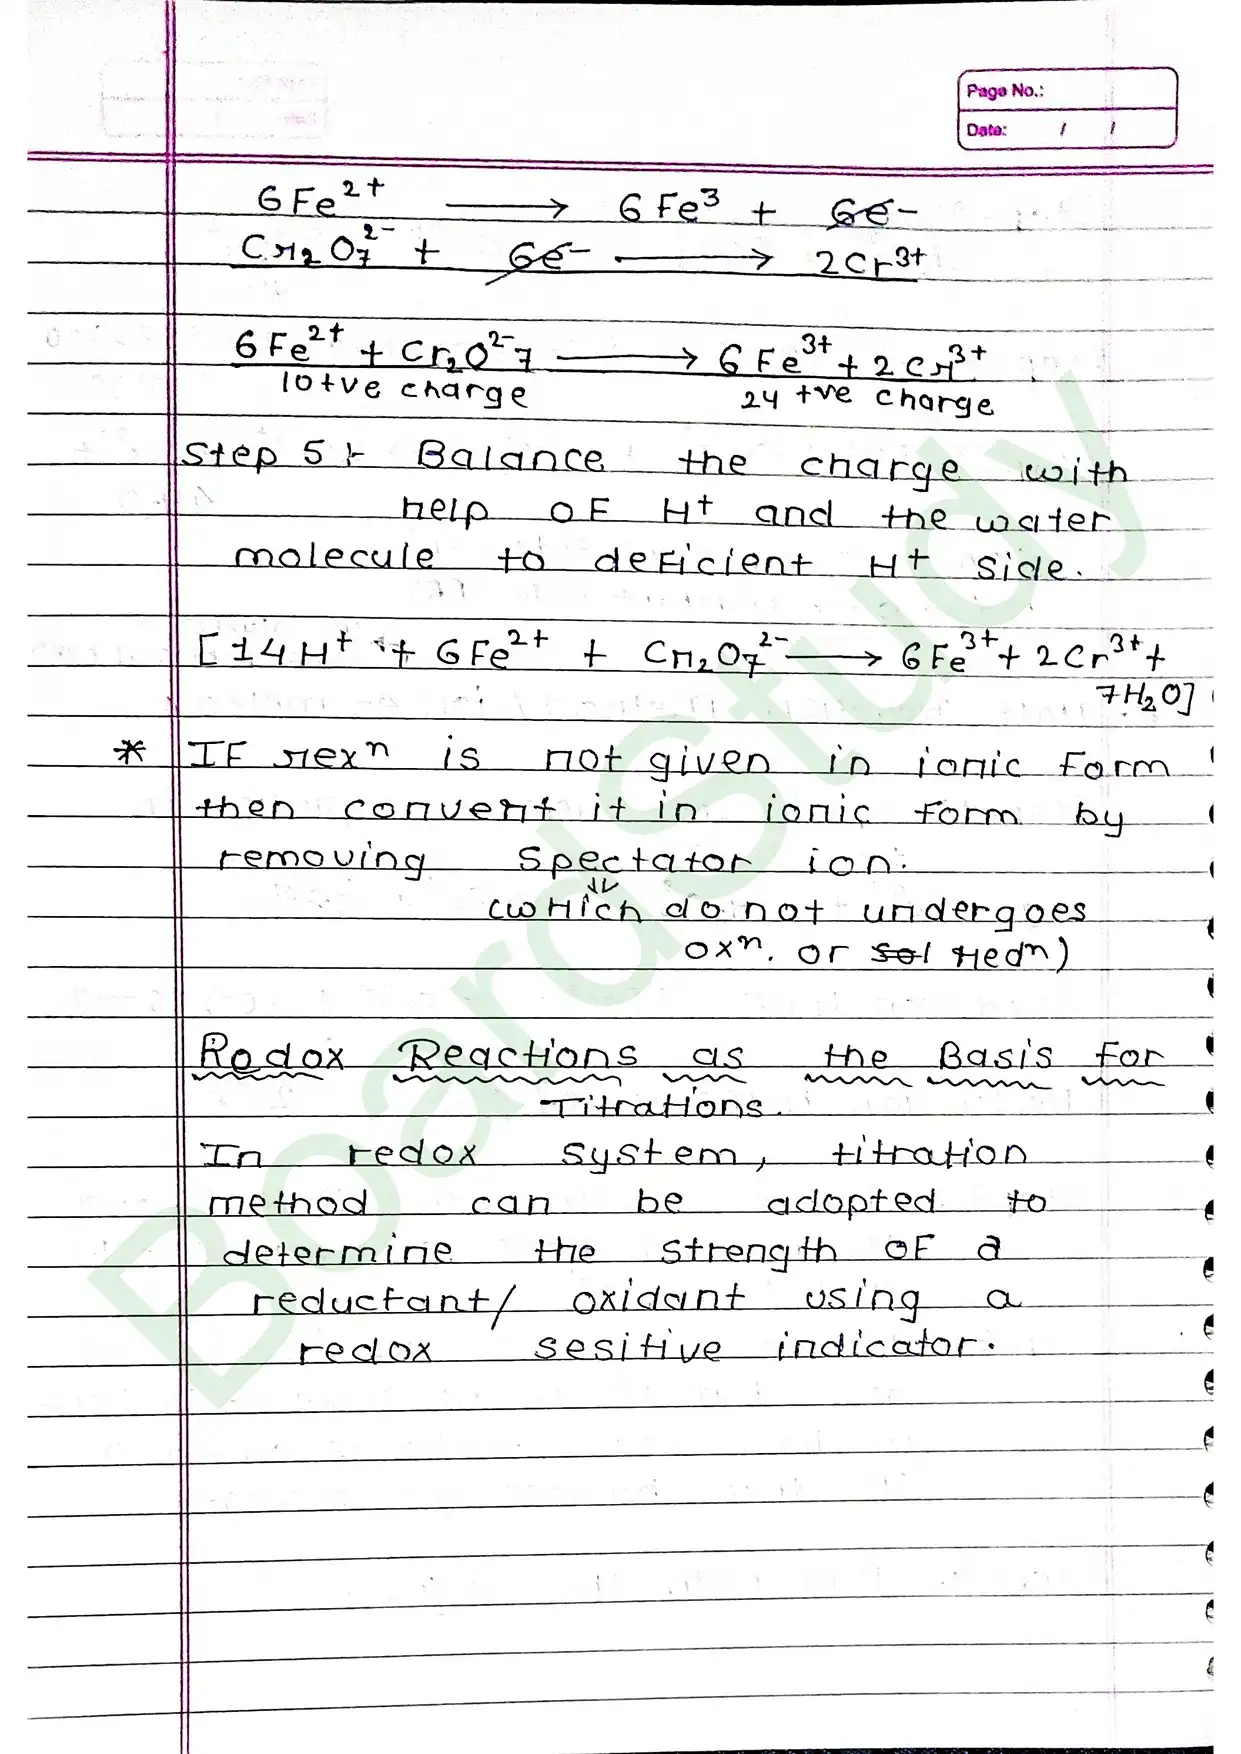 Page No.:
Date: / /
6Fe²⁺ ⟶ 6Fe³ + 6e⁻
Cr₂O₇²⁻ + 6e⁻ ⟶ 2Cr³⁺
6Fe²⁺ + Cr₂O²⁻7 ⟶ 6Fe³⁺ + 2Cr³⁺
10+ve charge 24 +ve charge
Step 5 :- Balance the charge with
help of H⁺ and the water
molecule to deficient H⁺ side.
[14H⁺ + 6Fe²⁺ + Cr₂O₇²⁻ ⟶ 6Fe³⁺ + 2Cr³⁺ +
7H₂O]
* If rexⁿ is not given in ionic form
then convert it in ionic form by
removing Spectator ion.
(which do not undergoes
oxⁿ. or sol redⁿ)
Redox Reactions as the Basis for
Titrations.
In redox system, titration
method can be adopted to
determine the strength of a
reductant/ oxidant using a
redox sesitive indicator.
BoardStudy